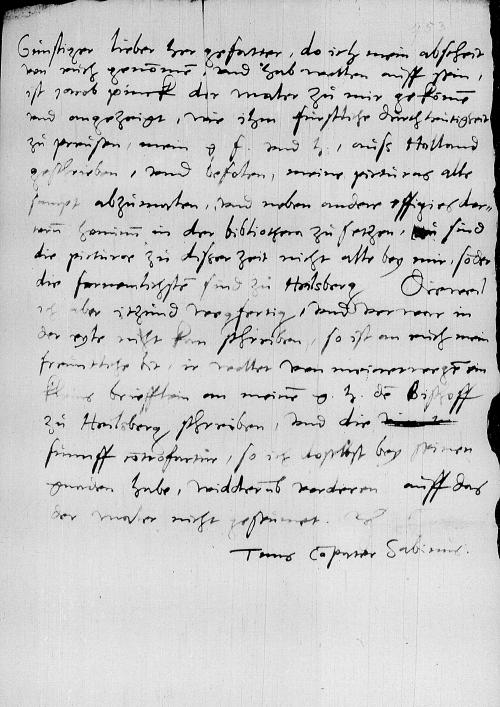 Günstiger lieber her gefatter, do ich mein abscheit
von euch genommē, und hab wollen auff sein,
ist jacob pinck der maler zu mir gekomē
und angezeigt, wie ihm fürstliche durchleuchtigkeit
zu preusen, mein g. f. und h., auss Holland
geschrieben, und befolen, meine picturas alle
sampt abzumalen, und neben andere effigies
hominū in der bibliotheca zu setzen, sind
die picturae zu diser zeit nicht alle bey mir, sōder
die furnemlichsten sind zu Heilsberg Dieweil
ich aber itzund wegfertig, und vorwar in
der eyle nicht kan schreiben, so ist an euch mein
freuntliche bit, ir wollet von meinetwegen ein
kleins briefflein an meinē g. h. dē Bischoff
zu Heilsberg schreiben, und die
funff cōtrofactur, so ich doselbst bey seinen
gnaden habe, widderūb vorderen auff das
der maler nicht geseumet.
Tuus cōpater Sabinus.